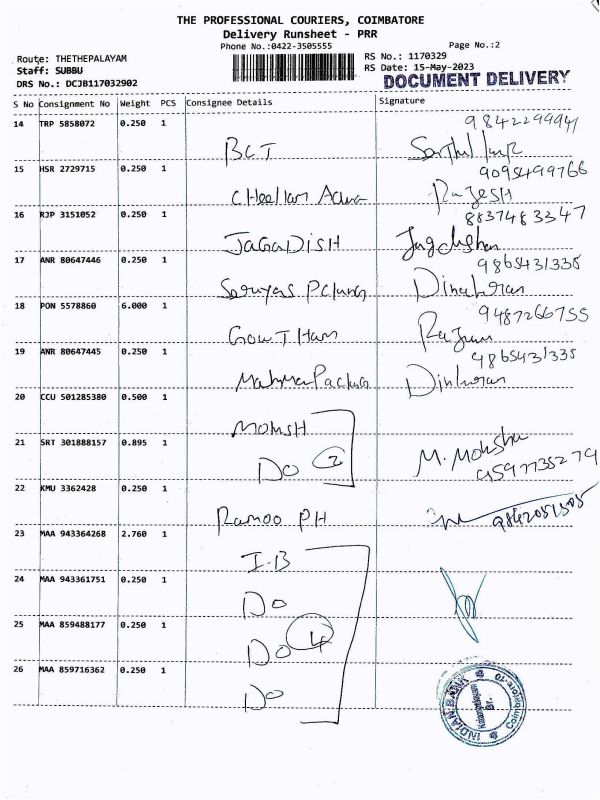 THE PROFESSIONAL COURIERS, COIMBATORE
Delivery Runsheet - PRR
Phone No.:0422-3505555
Page No.:2
Route: THETHEPALAYAM
RS No.: 1170329
Staff: SUBBU
RS Date: 15-May-2023
DRS No.: DCJB117032902
DOCUMENT DELIVERY
S No Consignment No Weight PCS Consignee Details Signature
14 TRP 5858072 0.250 1
BCT
15 HSR 2729715 0.250 1
9095499766
Rajesh
16 RJP 3151052 0.250 1
8837483347
JAGADISH
17 ANR 80647446 0.250 1
9865431335
18 PON 5578860 6.000 1
9487266755
GowTHam
19 ANR 80647445 0.250 1
9865431335
20 CCU 501285380 0.500 1
21 SRT 301888157 0.895 1
DO 2
22 KMU 3362428 0.250 1
Ramoo PH
9842051505
23 MAA 943364268 2.760 1
I.B
24 MAA 943361751 0.250 1
DO
25 MAA 859488177 0.250 1
DO 4
26 MAA 859716362 0.250 1
DO
INDIAN BANK
Br.
Coimbatore-10